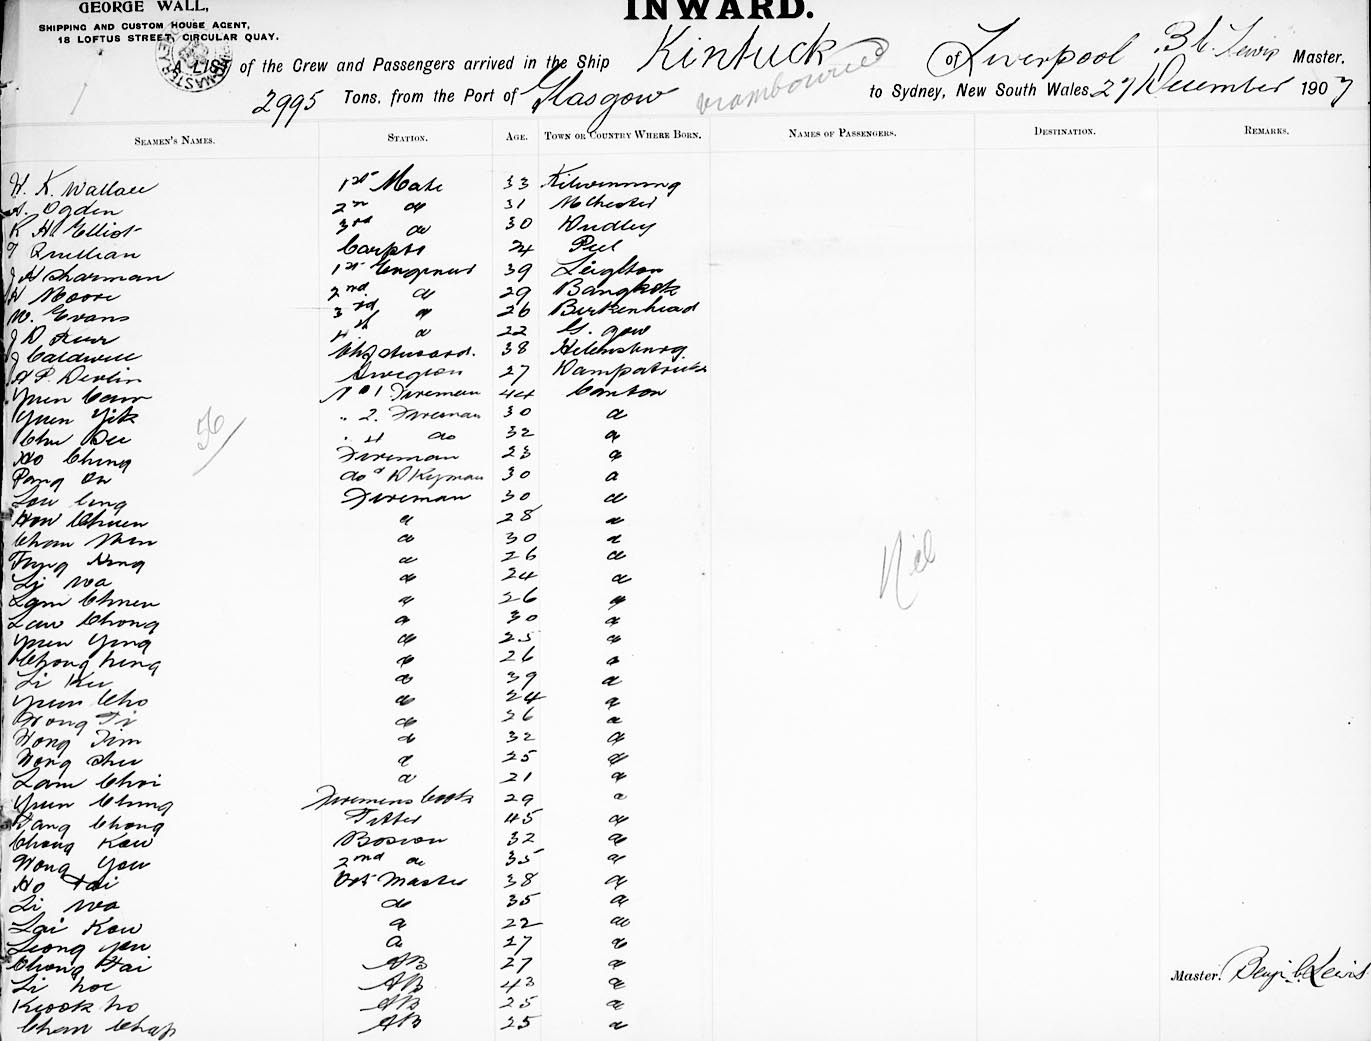 GEORGE WALL,
SHIPPING AND CUSTOM HOUSE AGENT,
18 LOFTUS STREET, CIRCULAR QUAY.
INWARD.
A LIST of the Crew and Passengers arrived in the Ship Kintuck of Liverpool B C Lewis Master.
2995 Tons, from the Port of Glasgow to Sydney, New South Wales 27 December 1907
SEAMEN'S NAMES. STATION. AGE. TOWN OR COUNTRY WHERE BORN. NAMES OF PASSENGERS. DESTINATION. REMARKS.
H. K. Wallace 1st Mate 33 Kilwinning
A. Ogden 2n do 31 Mchester
R H Elliot 3rd do 30 Dudley
T Quillian Carptr 24 Peel
J H Sharman 1st Engineer 39 Leighton
H Moore 2nd do 29 Bangkok
W. Evans 3rd do 26 Birkenhead
J D Kerr 4th do 22 G. gow
J Caldwell Ch Steward. 38 Helensburg
H P. Devlin Surgeon 27
Yuen Cam No 1 Fireman 44 Canton
Yuen Yik " 2. Fireman 30 do
Chu Dee " 4 do 32 do
Ho Ching Fireman 23 do
Pang On do & D Kyman 30 do
Lou Cing Fireman 30 do
How Chuen do 28 do
Chan Men do 30 do
Fung King do 26 do
Li Wa do 24 do
Lam Chuen do 26 do
Lau Chong do 30 do
Yuen Ying do 25 do
Chong Ning do 26 do
Li Ku do 39 do
Yuen Cho do 24 do
Wong Ti do 26 do
Wong Tim do 32 do
Wong Shu do 25 do
Lam Choi do 21 do
Yuen Ching Firemens Cook 29 do
Wang Chong Fitter 45 do
Chong Kow Boswn 32 do
Wong You 2nd do 35 do
Ho Tai Qr Master 38 do
Li Wo do 35 do
Lai Kow do 22 do
Leong Yau do 27 do
Chong Tai AB 27 do
Li hoe AB 43 do
Kwok ho AB 25 do
Chan Chap AB 25 do
56/
Nil
Master. Benj. C. Lewis